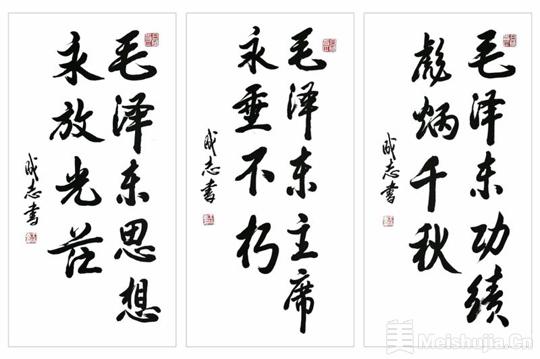 毛泽东思想
永放光芒
成志书
毛泽东主席
永垂不朽
成志书
毛泽东功绩
彪炳千秋
成志书
美 Meishujia.Cn